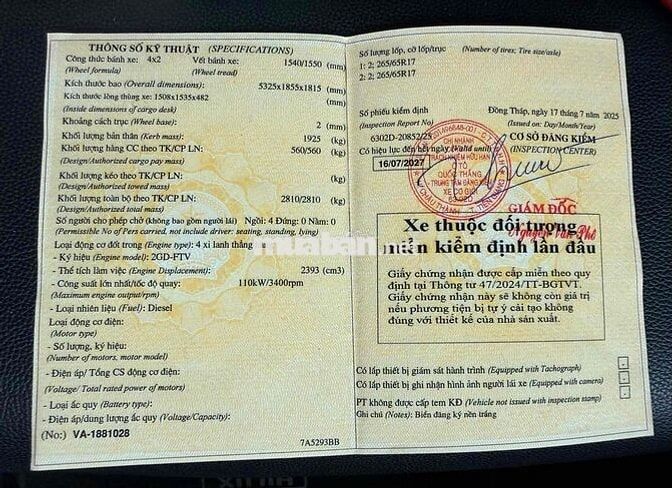 THÔNG SỐ KỸ THUẬT (SPECIFICATIONS)
Công thức bánh xe: 4x2 Vết bánh xe: 1540/1550 (mm)
(Wheel formula) (Wheel tread)
Kích thước bao (Overall dimensions): 5325x1855x1815 (mm)
Kích thước lòng thùng xe: 1508x1535x482 (mm)
(Inside dimensions of cargo desk)
Khoảng cách trục (Wheel base): 2 (mm)
Khối lượng bản thân (Kerb mass): 1925 (kg)
Khối lượng hàng CC theo TK/CP LN: 560/560 (kg)
(Design/Authorized cargo pay mass)
Khối lượng kéo theo TK/CP LN: (kg)
(Design/Authorized towed mass)
Khối lượng toàn bộ theo TK/CP LN: 2810/2810 (kg)
(Design/Authorized total mass)
Số người cho phép chở (không bao gồm người lái) Ngồi: 4 Đứng: 0 Nằm: 0
(Permissible No of Pers carried, not include driver: seating, standing, lying)
Loại động cơ đốt trong (Engine type): 4 xi lanh thẳng
- Ký hiệu (Engine model): 2GD-FTV
- Thể tích làm việc (Engine Displacement): 2393 (cm3)
- Công suất lớn nhất/tốc độ quay: 110kW/3400rpm
(Maximum engine output/rpm)
- Loại nhiên liệu (Fuel): Diesel
Loại động cơ điện:
(Motor type)
- Số lượng, ký hiệu:
(Number of motors, motor model)
- Điện áp/ Tổng CS động cơ điện:
(Voltage/ Total rated power of motors)
- Loại ắc quy (Battery type):
- Điện áp/dung lượng ắc quy (Voltage/Capacity):
(No:) VA-1881028
7A5293BB
Số lượng lốp, cỡ lốp/trục (Number of tires; Tire size/axle)
1: 2; 265/65R17
2: 2; 265/65R17
Số phiếu kiểm định Đồng Tháp, ngày 17 tháng 7 năm 2025
(Inspection Report No) (Issued on: Day/Month/Year)
6302D-20852/25 CƠ SỞ ĐĂNG KIỂM
Có hiệu lực đến hết ngày (Valid until) (INSPECTION CENTER)
16/07/2027
CHI NHÁNH
TRÁCH NHIỆM HỮU HẠN
TÔ
QUỐC THẮNG
TRUNG TÂM ĐĂNG KIỂM
XE CƠ GIỚI
63-02D
GIÁM ĐỐC
Xe thuộc đối tượng
miễn kiểm định lần đầu
Giấy chứng nhận được cấp miễn theo quy
định tại Thông tư 47/2024/TT-BGTVT.
Giấy chứng nhận này sẽ không còn giá trị
nếu phương tiện bị tự ý cải tạo không
đúng với thiết kế của nhà sản xuất.
Có lắp thiết bị giám sát hành trình (Equipped with Tachograph) -
Có lắp thiết bị ghi nhận hình ảnh người lái xe (Equipped with camera) -
PT không được cấp tem KĐ (Vehicle not issued with inspection stamp)
Ghi chú (Notes): Biển đăng ký nền trắng